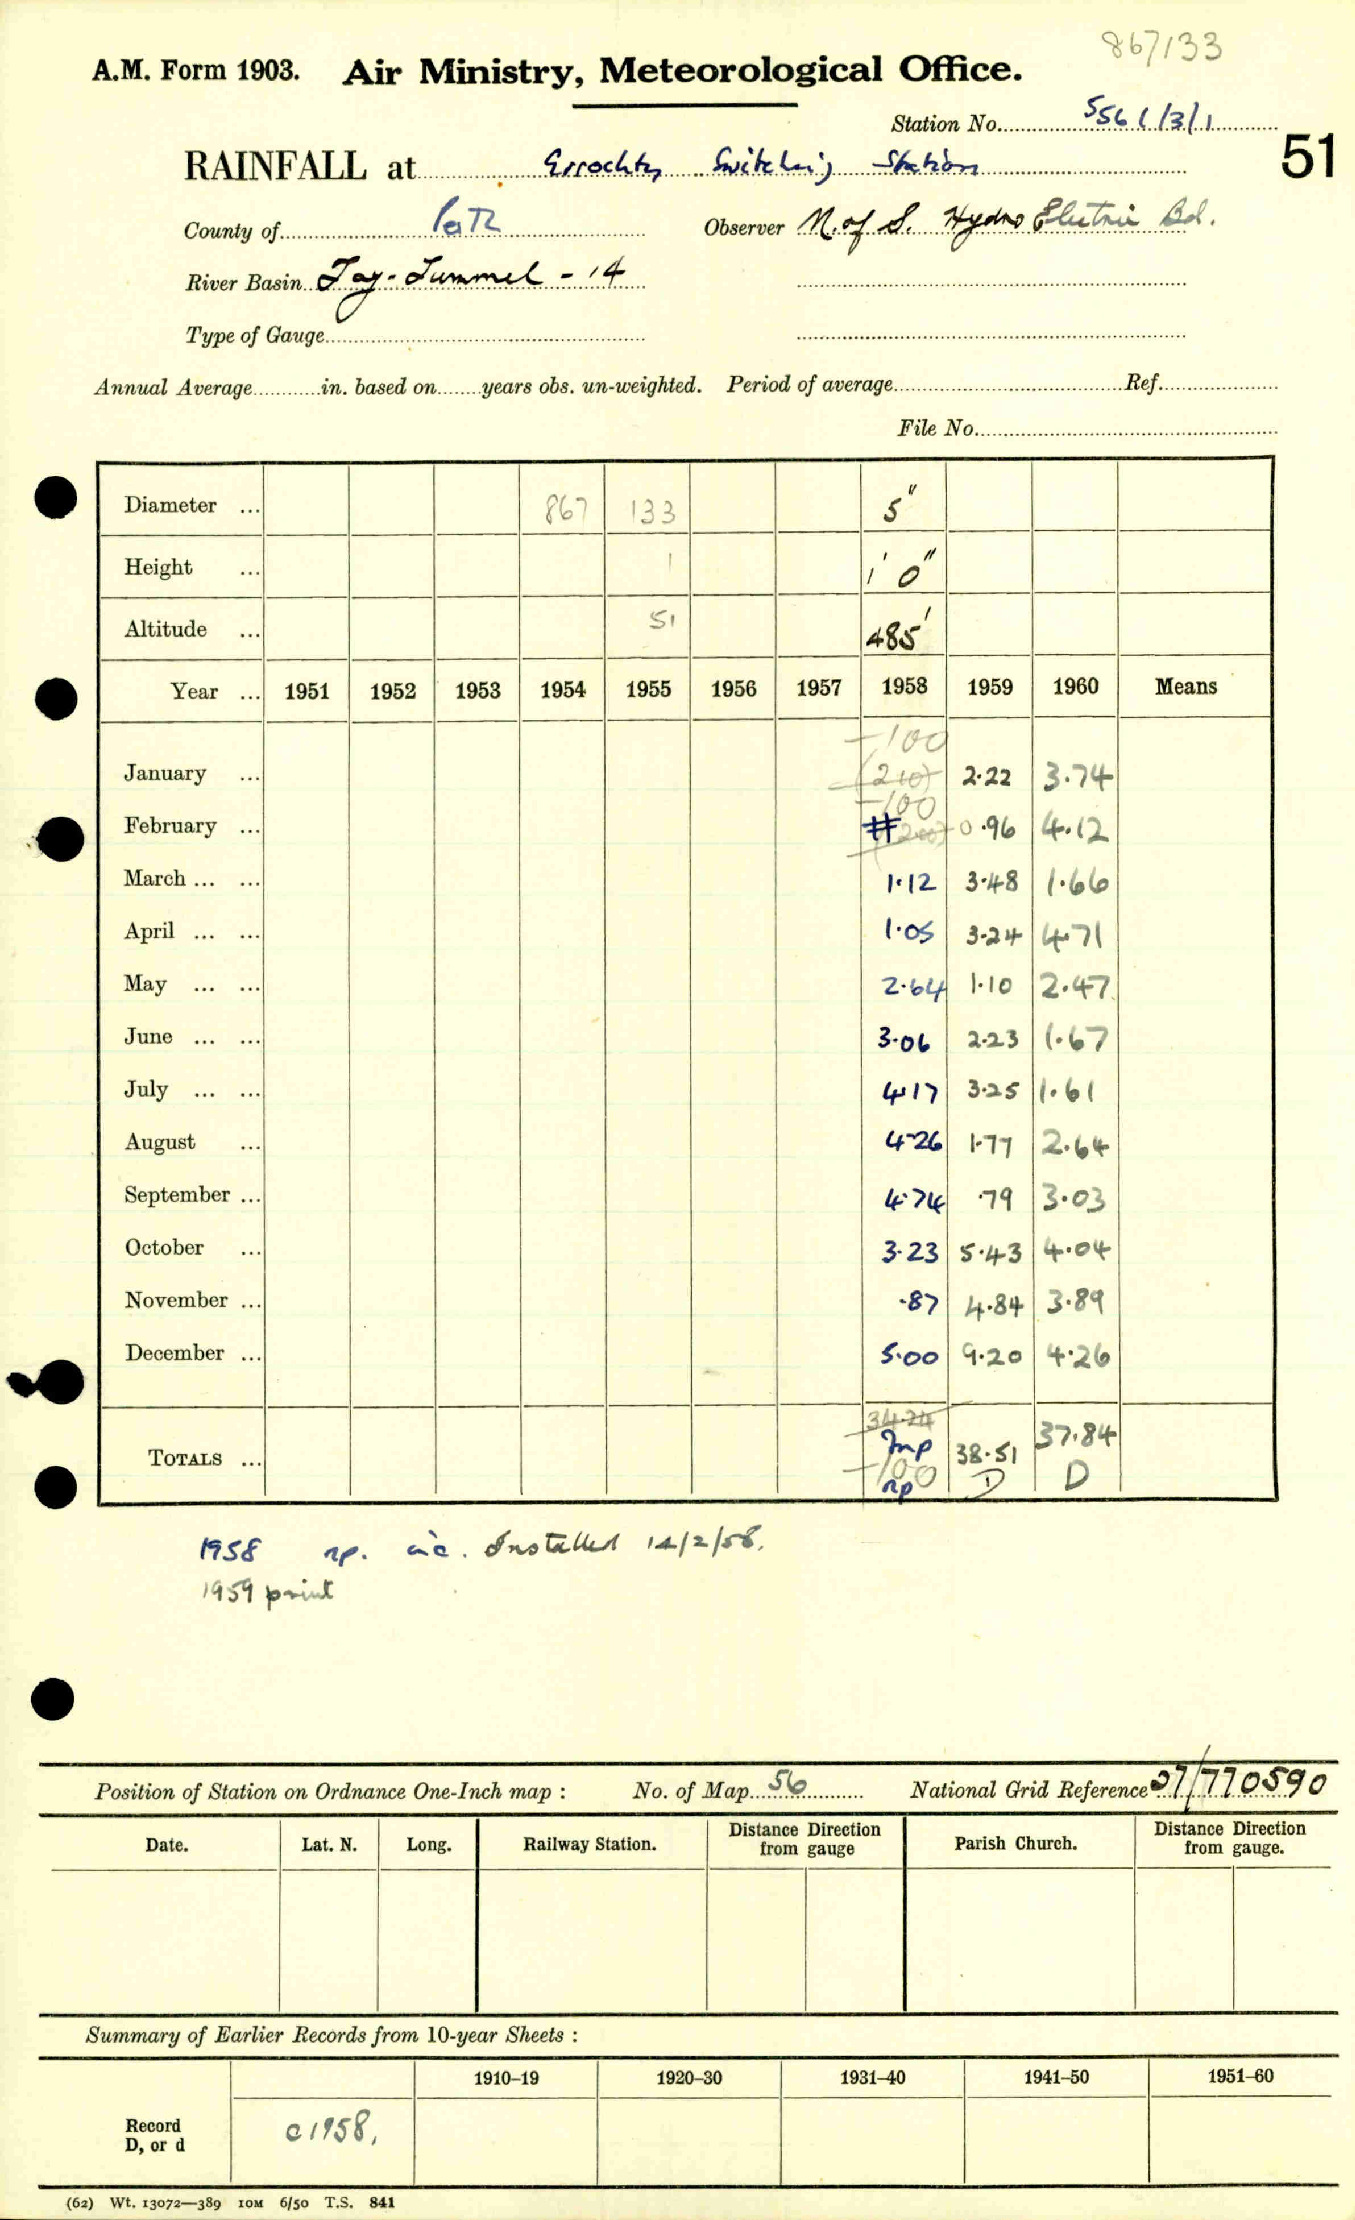 867/133
A.M. Form 1903. Air Ministry, Meteorological Office.
Station No. 5561/3/1
51
RAINFALL at Errochty Switching Station
County of Perth Observer N. of S. Hydro Electric Bd.
River Basin Tay-Tummel - 14
Type of Gauge
Annual Average in. based on years obs. un-weighted. Period of average Ref.
File No.
Diameter ... 867 133 5"
Height ... 1 1' 0"
Altitude ... 51 485'
Year ... 1951 1952 1953 1954 1955 1956 1957 1958 1959 1960 Means
-100
January ... (210) 2.22 3.74
-100
February ... # (200) 0.96 4.12
March ... ... 1.12 3.48 1.66
April ... ... 1.05 3.24 4.71
May ... ... 2.64 1.10 2.47
June ... ... 3.06 2.23 1.67
July ... ... 4.17 3.25 1.61
August ... 4.26 1.77 2.64
September ... 4.74 .79 3.03
October ... 3.23 5.43 4.04
November ... .87 4.84 3.89
December ... 5.00 9.20 4.26
34.24
TOTALS ... Inp 38.51 37.84
-100 D D
np
1958 np. inc. Installed 14/2/58.
1959 print
Position of Station on Ordnance One-Inch map : No. of Map 56 National Grid Reference 27/770590
Date. Lat. N. Long. Railway Station. Distance Direction from gauge Parish Church. Distance Direction from gauge.
Summary of Earlier Records from 10-year Sheets :
1910–19 1920–30 1931–40 1941–50 1951–60
Record
D, or d
c1958.
(62) Wt. 13072—389 10M 6/50 T.S. 841